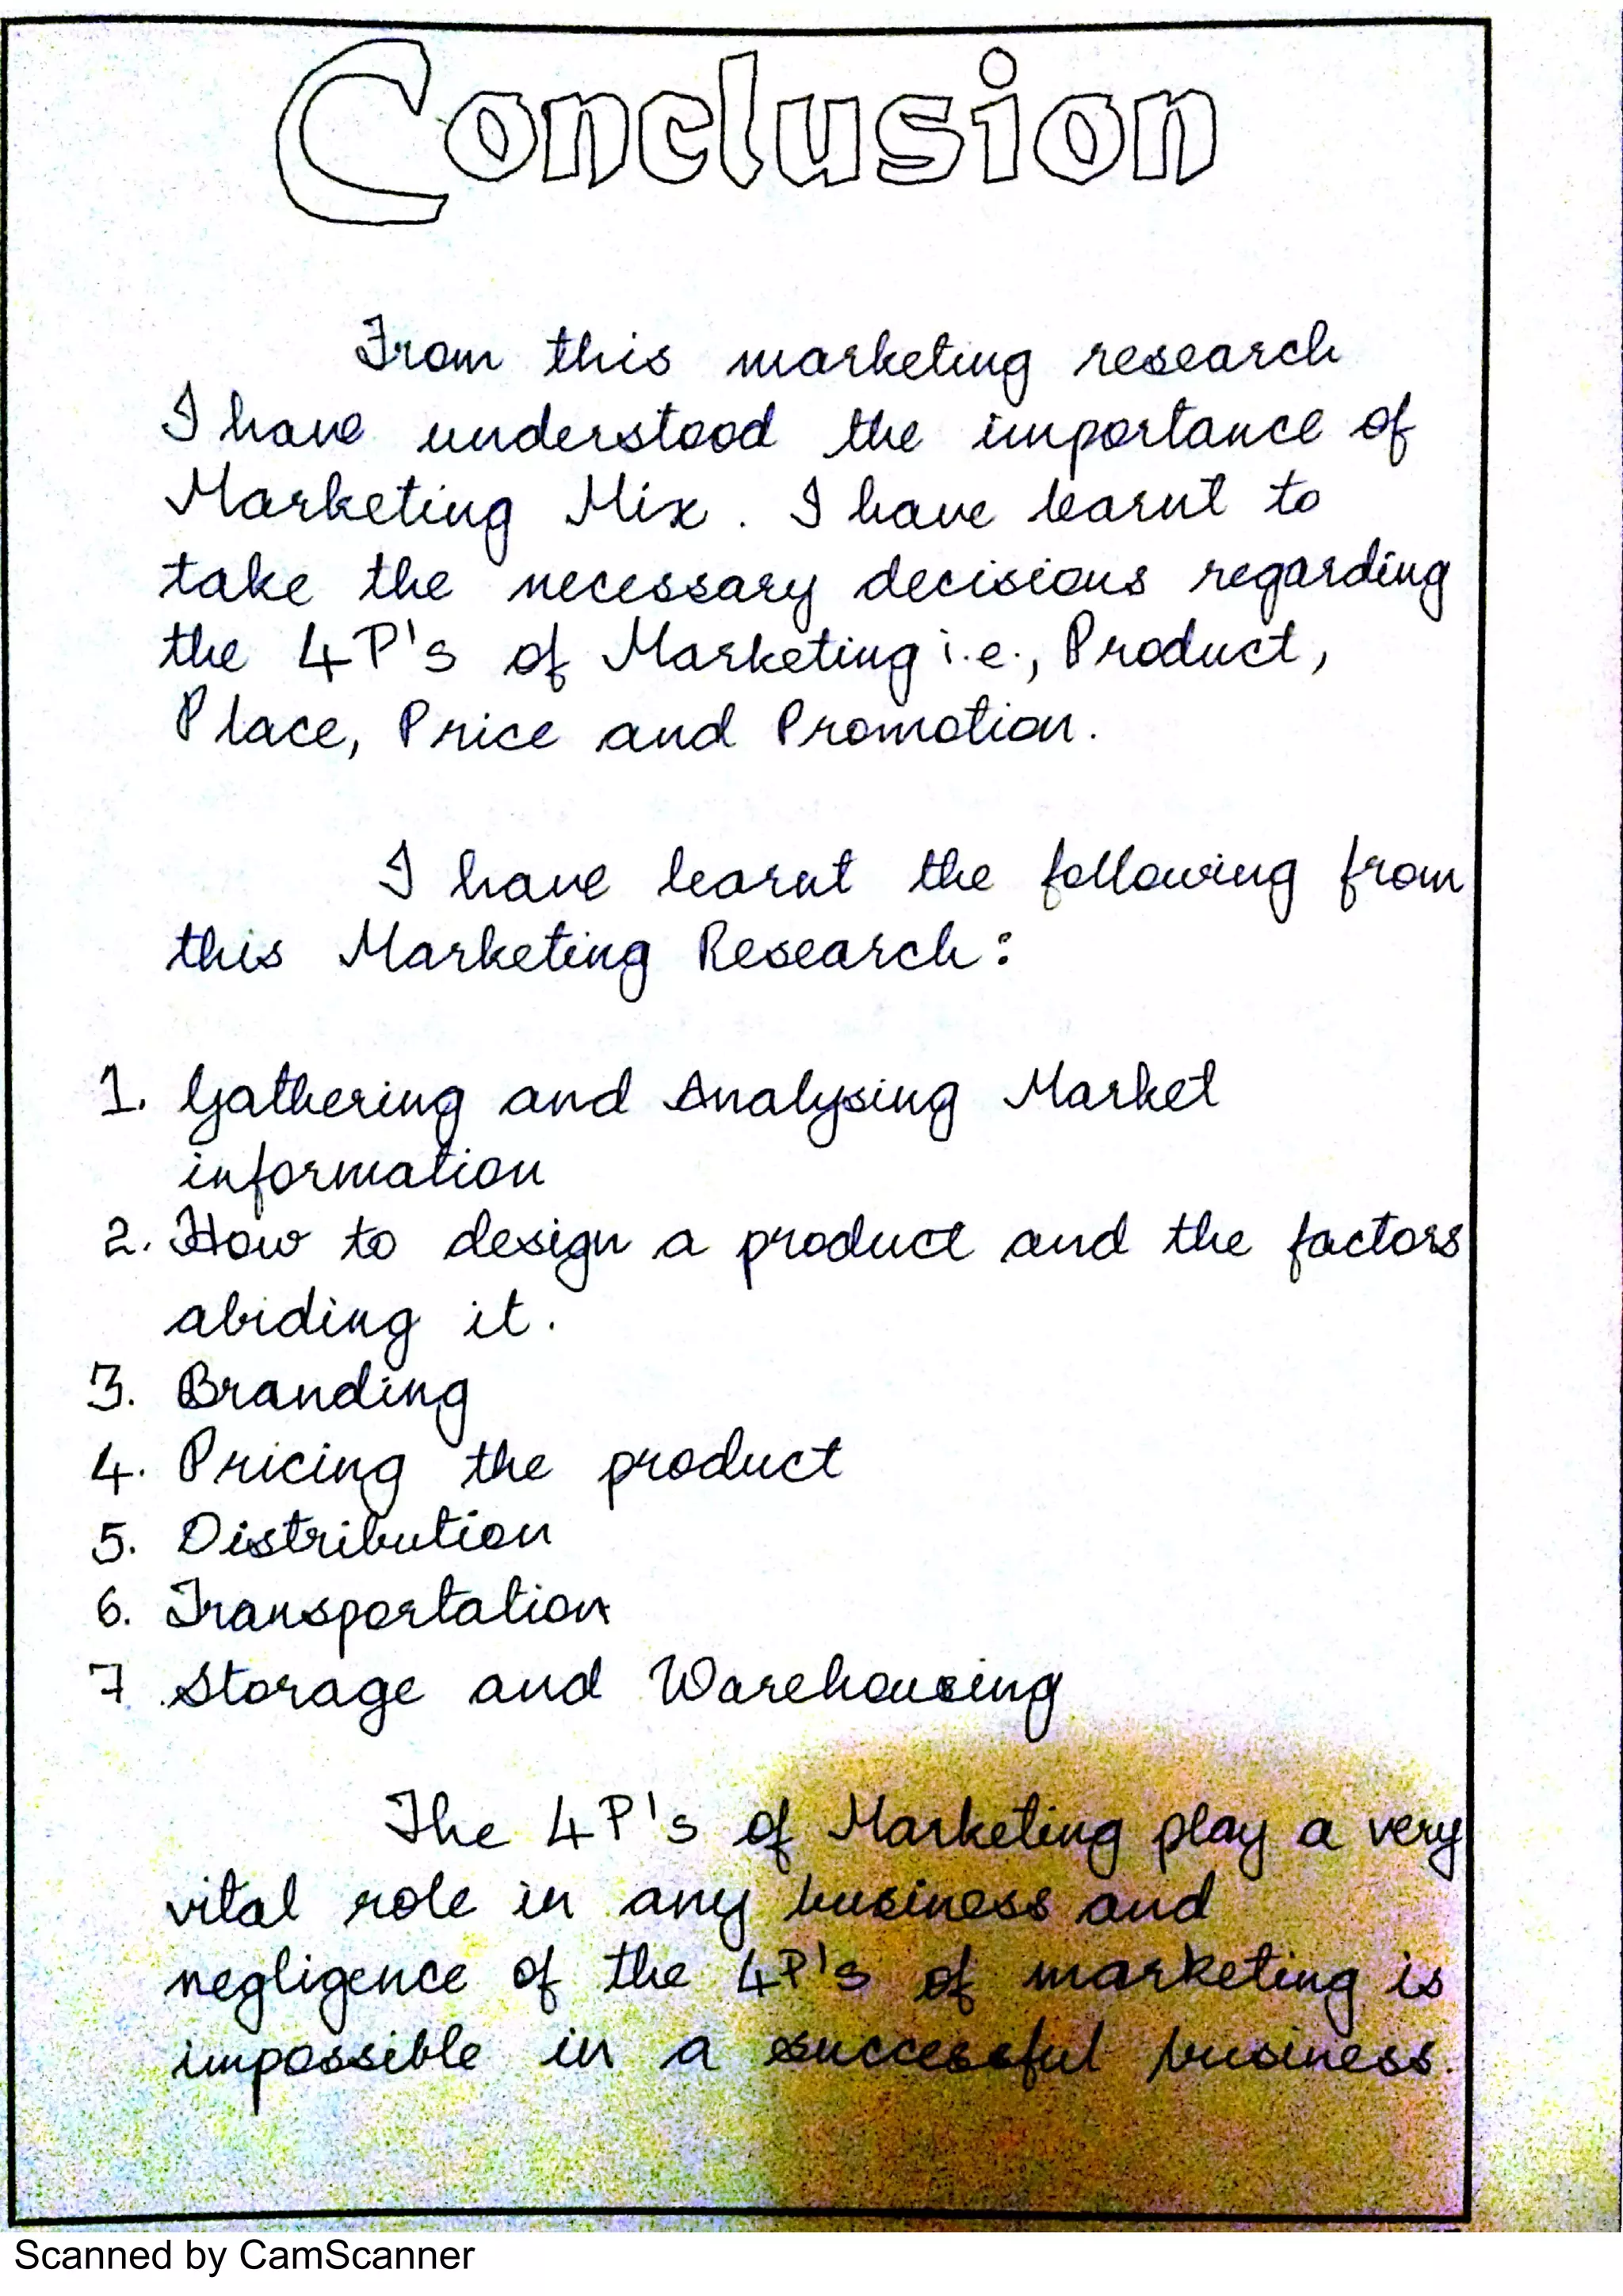 Conclusion
From this marketing research
I have understood the importance of
Marketing Mix. I have learnt to
take the necessary decisions regarding
the 4P's of Marketing i.e., Product,
Place, Price and Promotion.
I have learnt the following from
this Marketing Research:
1. Gathering and Analysing Market
information
2. How to design a product and the factors
abiding it.
3. Branding
4. Pricing the product
5. Distribution
6. Transportation
7. Storage and Warehousing
The 4P's of Marketing play a very
vital role in any business and
negligence of the 4P's of marketing is
impossible in a successful business.
Scanned by CamScanner